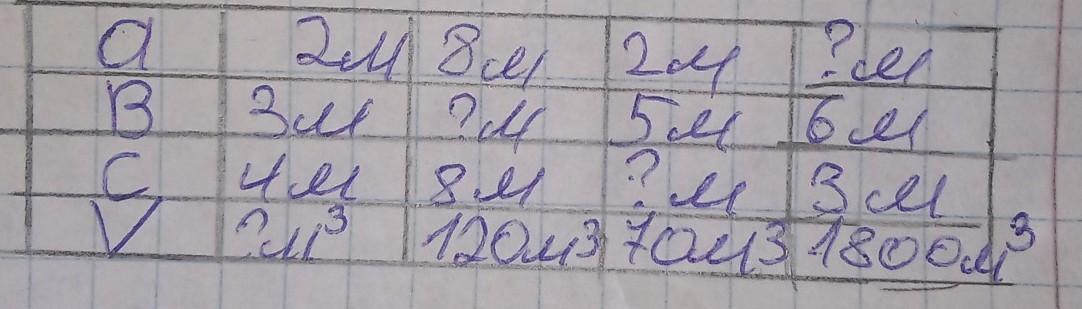 a 2м 8м 2м ?м
В 3м ?м 5м 6м
С 4м 8м ?м 3м
V ?м³ 120м³ 70м³ 1800м³